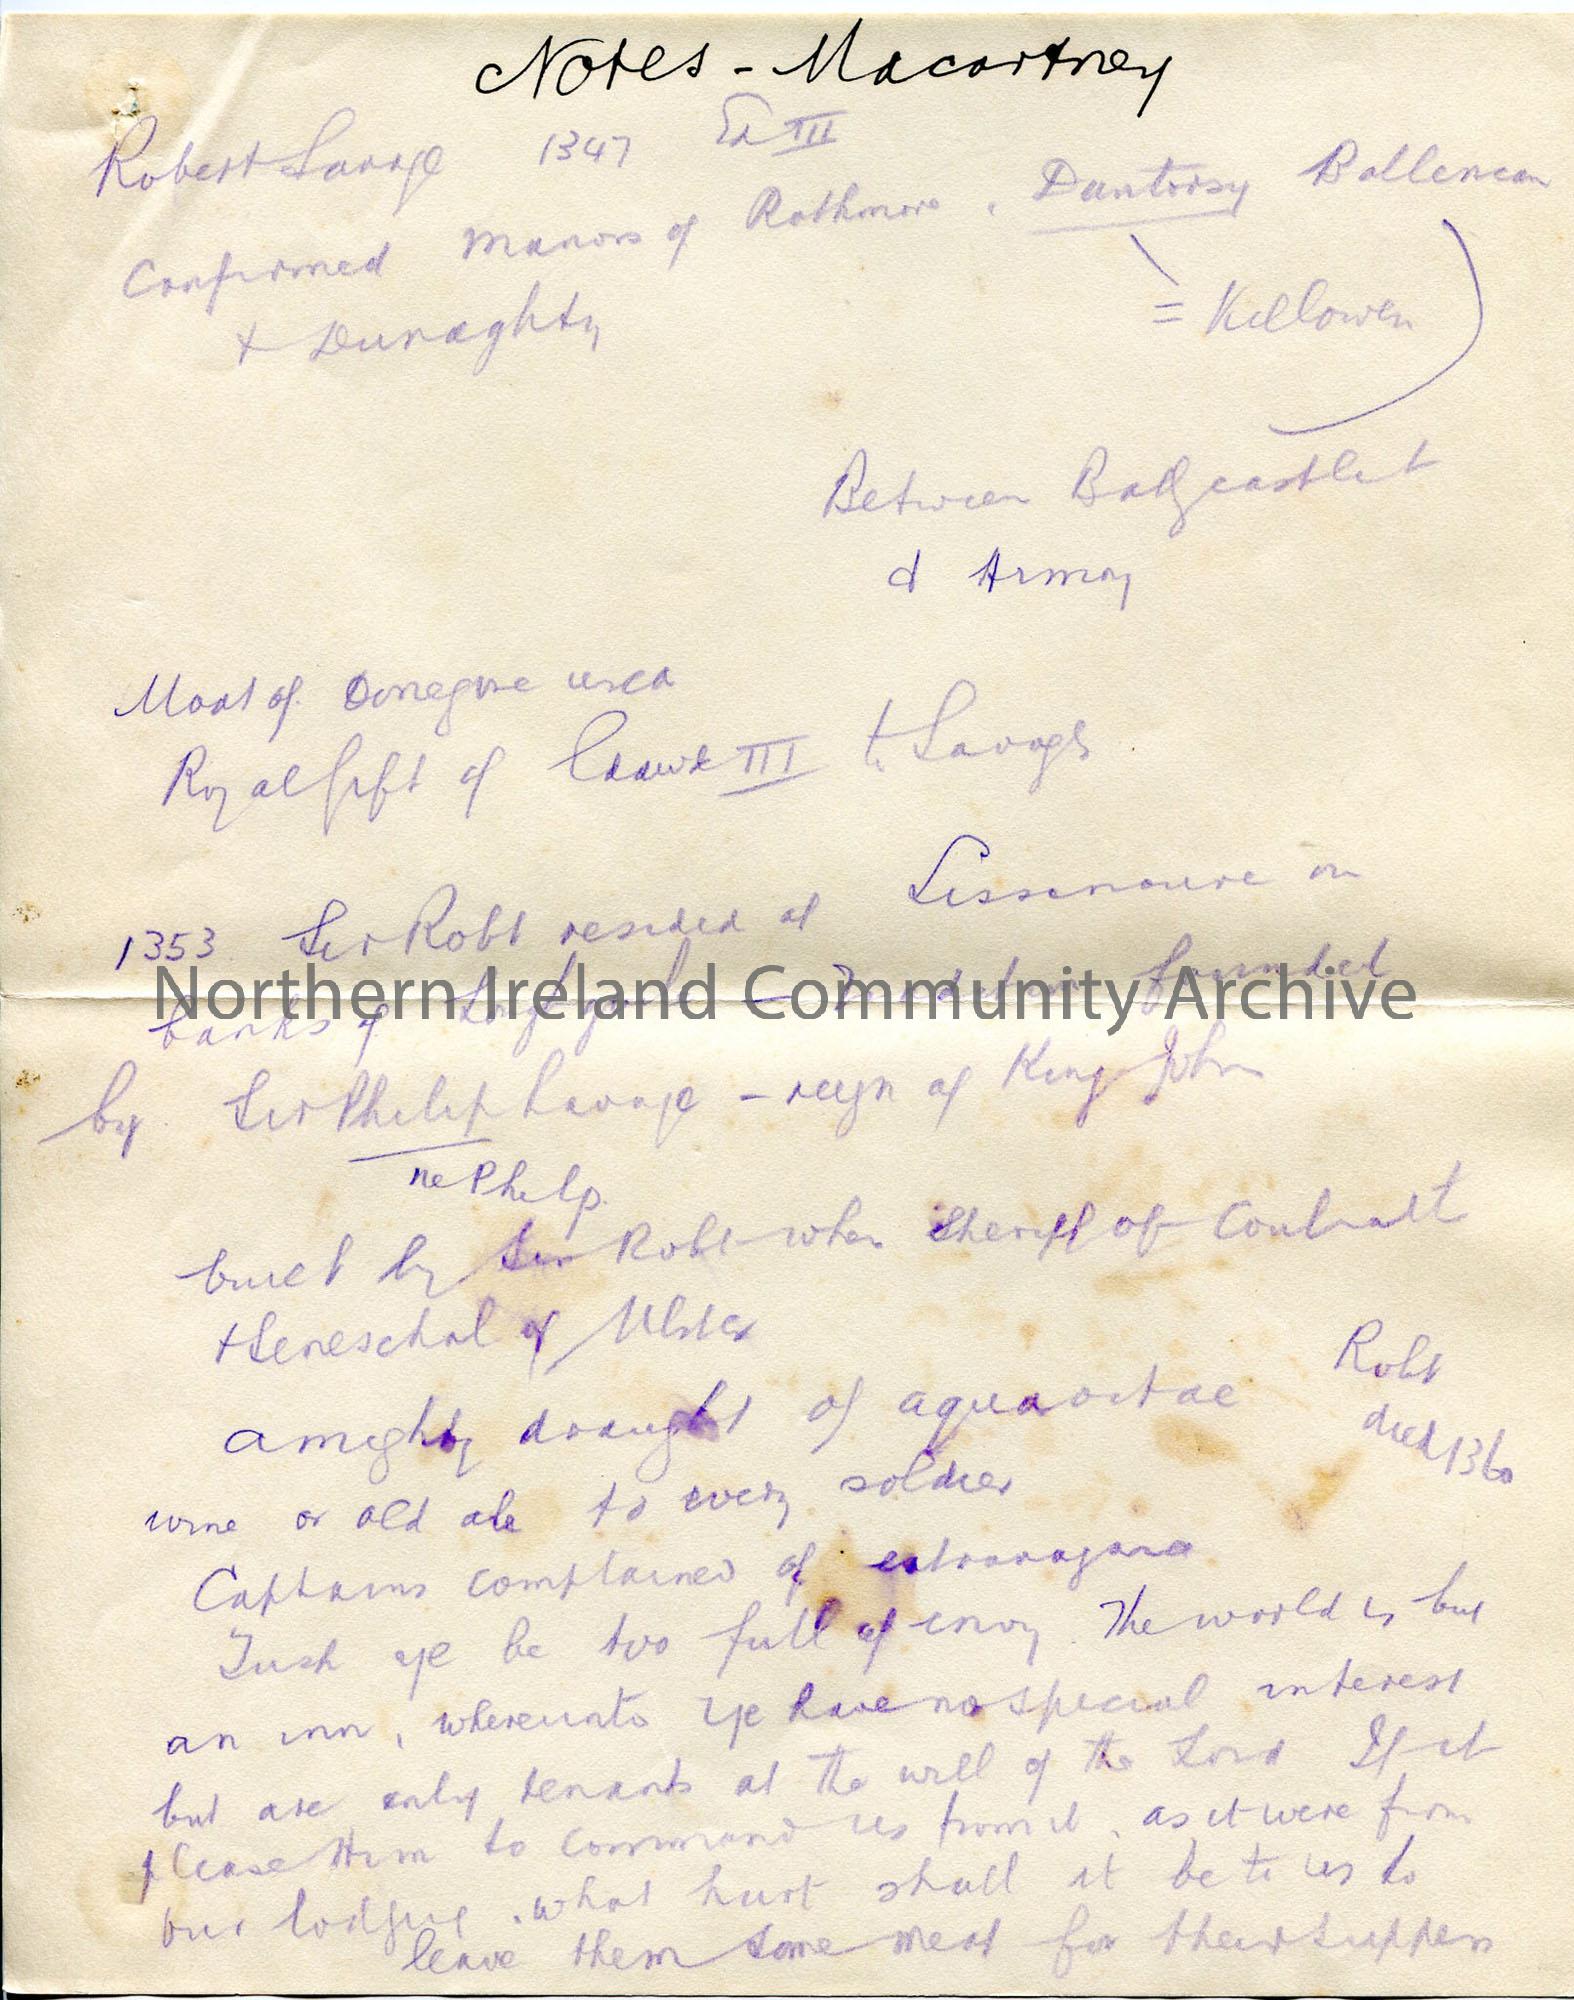 Notes - Macartney
Robert Savage 1347 Ed III
Confirmed Manors of Rathmore, Duntorsy Ballencan
= Killowen
+ Dunaghty
Between Ballycastle
& Armoy
Moat of Donegore used
Royal gift of Edward III to Savages
1353 Sir Robt resided at Lissanoure on
banks of Lough founded
Northern Ireland Community Archive
by Sir Philip Savage - reign of King John
ne Philip
built by Sir Robt when Sheriff of
+ Seneschal of Ulster
a mighty draught of aquavitae
Robt
died 1360
wine or old ale to every soldier
Captains complained of extravagance
Tush ye be too full of envy. The world is but
an inn, whereunto ye have no special interest
but are only tenants at the will of the Lord If it
please Him to command us from it, as it were from
our lodging, what hurt shall it be to us to
leave them some meat for their suppers